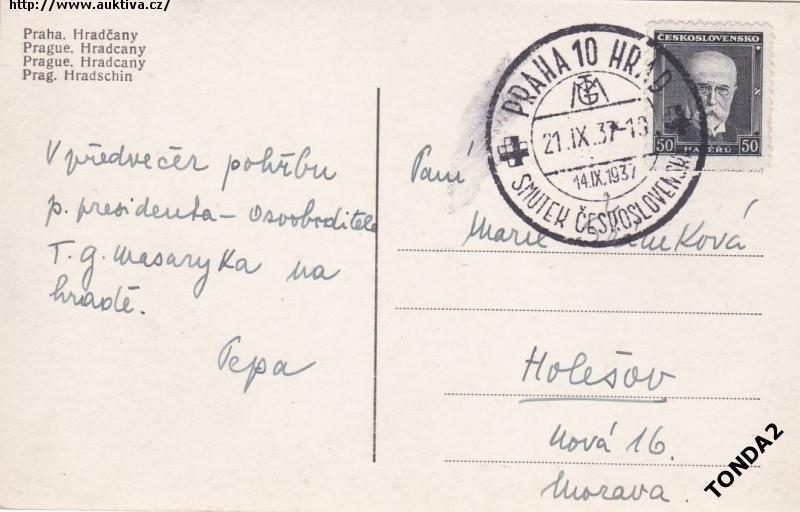 http://www.auktiva.cz/
Praha. Hradčany
Prague. Hradcany
Prague. Hradcany
Prag. Hradschin
V předvečer pohřbu
p. presidenta - Osvoboditele
T. g. Masaryka na
hradě.
Pepa
PRAHA 10 HRAD
TGM
21.IX.37-18
14.IX.1937
SMUTEK ČESKOSLOVENSKA
ČESKOSLOVENSKO
50 HALÉŘŮ 50
Paní
Marie
Holešov
Nová 16.
Morava.
TONDA2